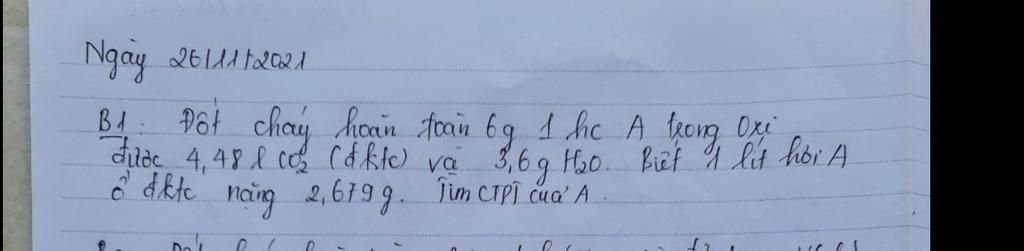 Ngày 26/11/2021
B1: Đốt cháy hoàn toàn 6g 1 hc A trong Oxi
được 4,48 l CO2 (đktc) và 3,6 g H2O. Biết 1 lít hơi A
ở đktc nặng 2,679 g. Tìm CTPT của A.